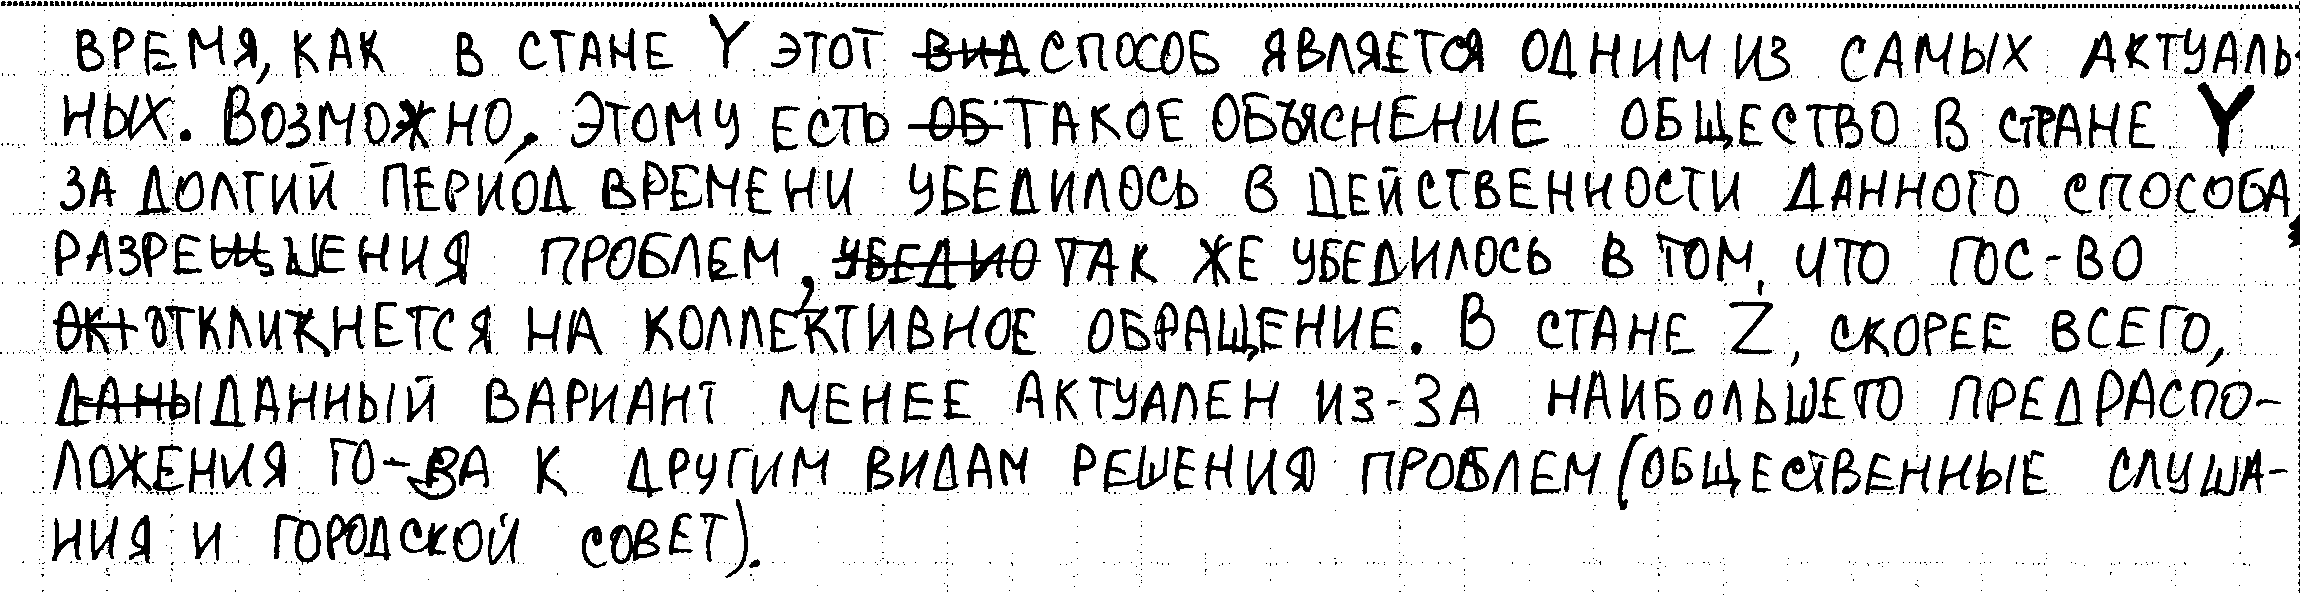 ВРЕМЯ, КАК В СТАНЕ Y ЭТОТ ВИД СПОСОБ ЯВЛЯЕТСЯ ОДНИМ ИЗ САМЫХ АКТУАЛЬ-
НЫХ. ВОЗМОЖНО, ЭТОМУ ЕСТЬ ОБ ТАКОЕ ОБЪЯСНЕНИЕ ОБЩЕСТВО В СТРАНЕ Y
ЗА ДОЛГИЙ ПЕРИОД ВРЕМЕНИ УБЕДИЛОСЬ В ДЕЙСТВЕННОСТИ ДАННОГО СПОСОБА
РАЗРЕШЕНИЯ ПРОБЛЕМ, УБЕДИО ТАК ЖЕ УБЕДИЛОСЬ В ТОМ, ЧТО ГОС-ВО
ОКТ ОТКЛИКНЕТСЯ НА КОЛЛЕКТИВНОЕ ОБРАЩЕНИЕ. В СТАНЕ Z, СКОРЕЕ ВСЕГО,
ДАНЫ ДАННЫЙ ВАРИАНТ МЕНЕЕ АКТУАЛЕН ИЗ-ЗА НАИБОЛЬШЕГО ПРЕДРАСПО-
ЛОЖЕНИЯ ГО-ВА К ДРУГИМ ВИДАМ РЕШЕНИЯ ПРОБЛЕМ (ОБЩЕСТВЕННЫЕ СЛУША-
НИЯ И ГОРОДСКОЙ СОВЕТ).